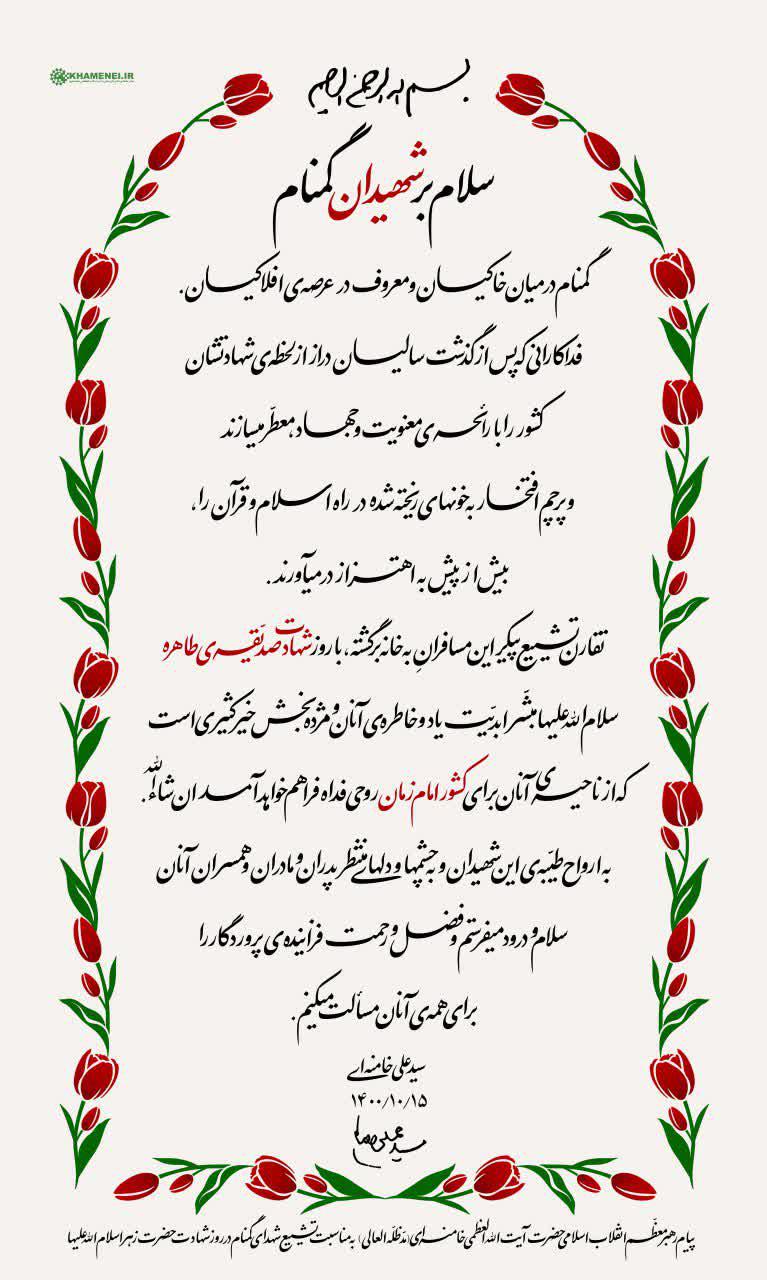 KHAMENEI.IR
بسم الله الرحمن الرحیم
سلام بر شهیدان گمنام
گمنام در میان خاکیان و معروف در عرصه‌ی افلاکیان.
فداکارانی که پس از گذشت سالیان دراز از لحظه‌ی شهادتشان
کشور را با رائحه‌ی معنویت و جهاد، معطّر میسازند
و پرچم افتخار به خونهای ریخته شده در راه اسلام و قرآن را،
بیش از پیش به اهتزاز درمیآورند.
تقارن تشییع پیکر این مسافرانِ به خانه برگشته، با روز شهادت صدّیقه‌ی طاهره
سلام الله علیها مبشّر ابدیّت یاد و خاطره‌ی آنان و مژده‌بخش خیر کثیری است
که از ناحیه‌ی آنان برای کشور امام زمان روحی فداه فراهم خواهد آمد ان شاءالله.
به ارواح طیّبه‌ی این شهیدان و به چشمها و دلهای منتظر پدران و مادران و همسران آنان
سلام و درود میفرستم و فضل و رحمت فزاینده‌ی پروردگار را
برای همه‌ی آنان مسألت میکنم.
سید علی خامنه‌ای
۱۴۰۰/۱۰/۱۵
پیام رهبر معظّم انقلاب اسلامی حضرت آیت الله العظمی خامنه‌ای (مدّظلّه العالی) به مناسبت تشییع شهدای گمنام در روز شهادت حضرت زهرا سلام الله علیها